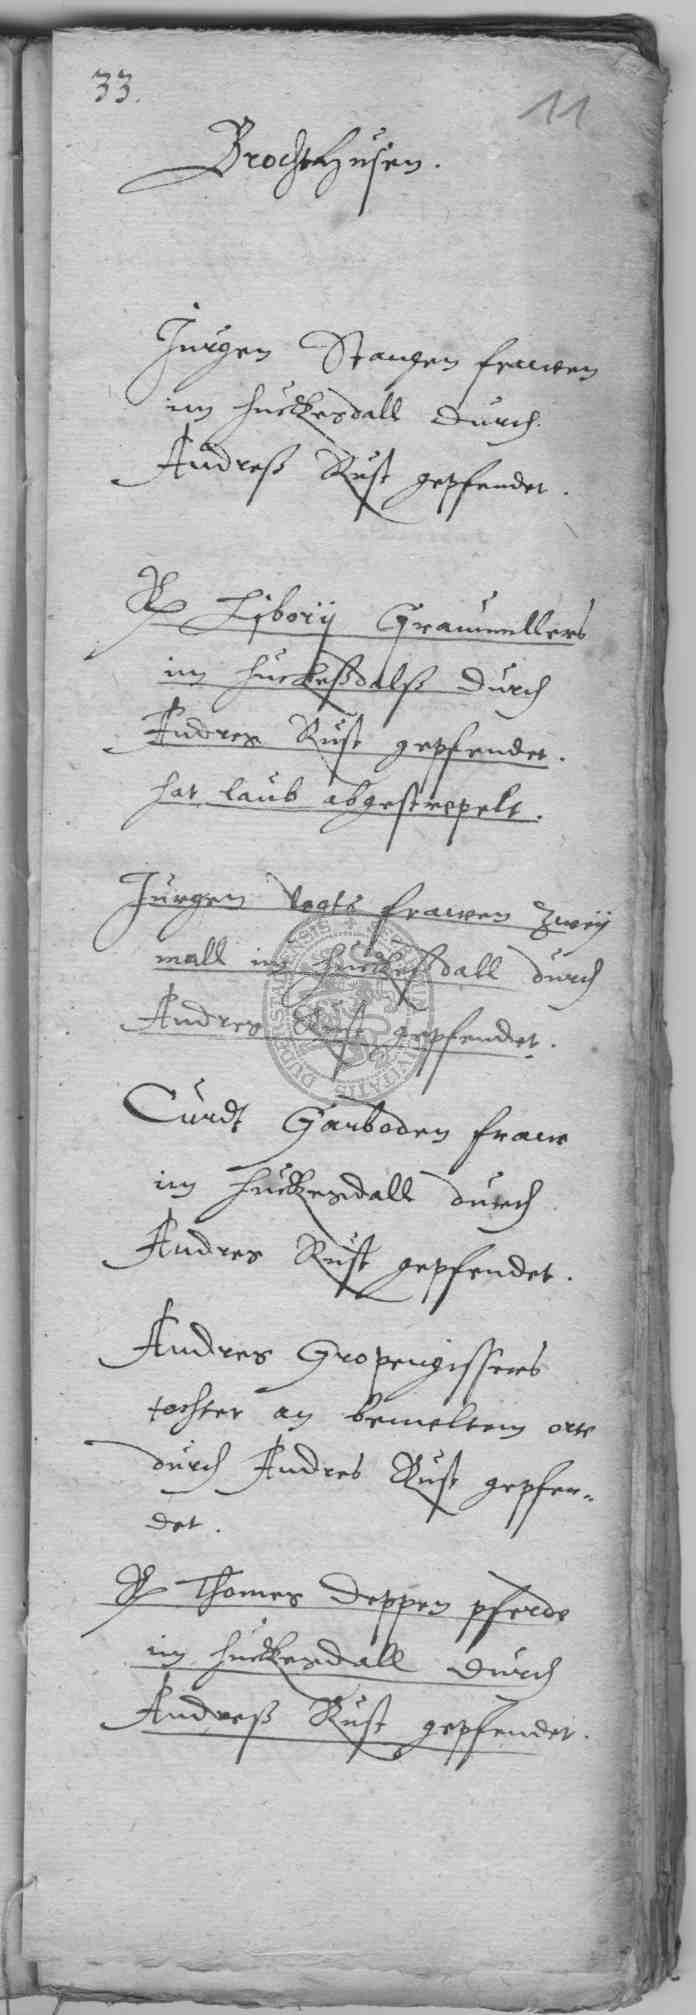 33.
11
Brochthusen.
Jurgen Stangen frawen
im huckesdall durch
Andreß Rust gepfendet.
Lyborij Graumullers
im huckeßdalß durch
Andres Rust gepfendet.
hat laub abgestrepelt.
Jurgen Vogts frawen zweÿ
mall im huckeßdall durch
Andres Rust gepfendet.
Curdt Garboden fraw
im huckesdall durch
Andres Rust gepfendet.
Andres Gropengissers
tochter an bemeltem orte
durch Andres Rust gepfen=
det.
Thomes Deppen pferde
im huckesdall durch
Andreß Rust gepfendet.